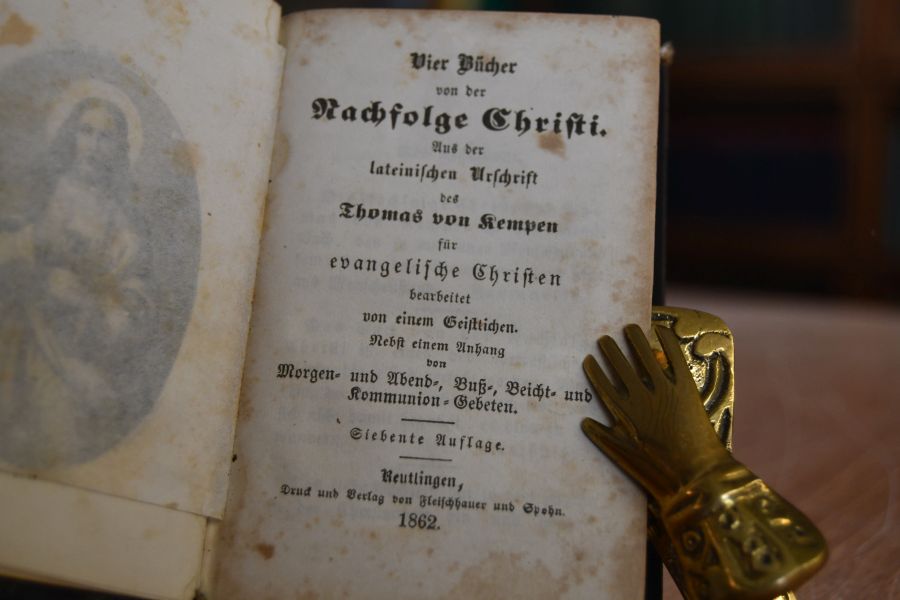 Vier Bücher
von der
Nachfolge Christi.
Aus der
lateinischen Urschrift
des
Thomas von Kempen
für
evangelische Christen
bearbeitet
von einem Geistlichen.
Nebst einem Anhang
von
Morgen- und Abend-, Buß-, Beicht- und
Kommunion-Gebeten.
Siebente Auflage.
Reutlingen,
Druck und Verlag von Fleischhauer und Spohn.
1862.